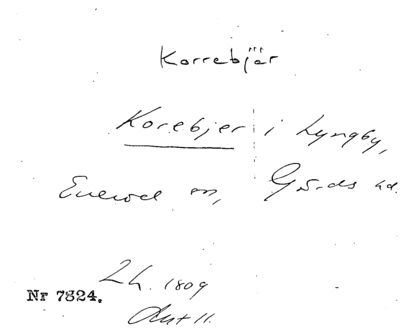 Korrebjär
Korebjer i Lyngby,
Everöd sn, Gärds hd.
Lh. 1809
Akt 11.
Nr 7824.